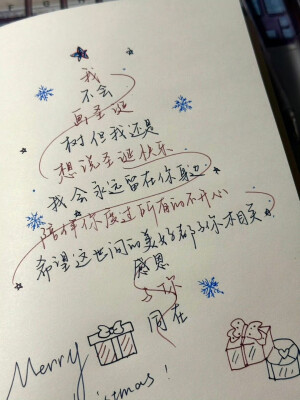 我
不会
画圣诞
树但我还是
想说圣诞快乐
我会永远留在你身边
陪伴你度过所有的不开心
希望这世间的美好都与你相关
感恩
与你
同在
Merry
Christmas!